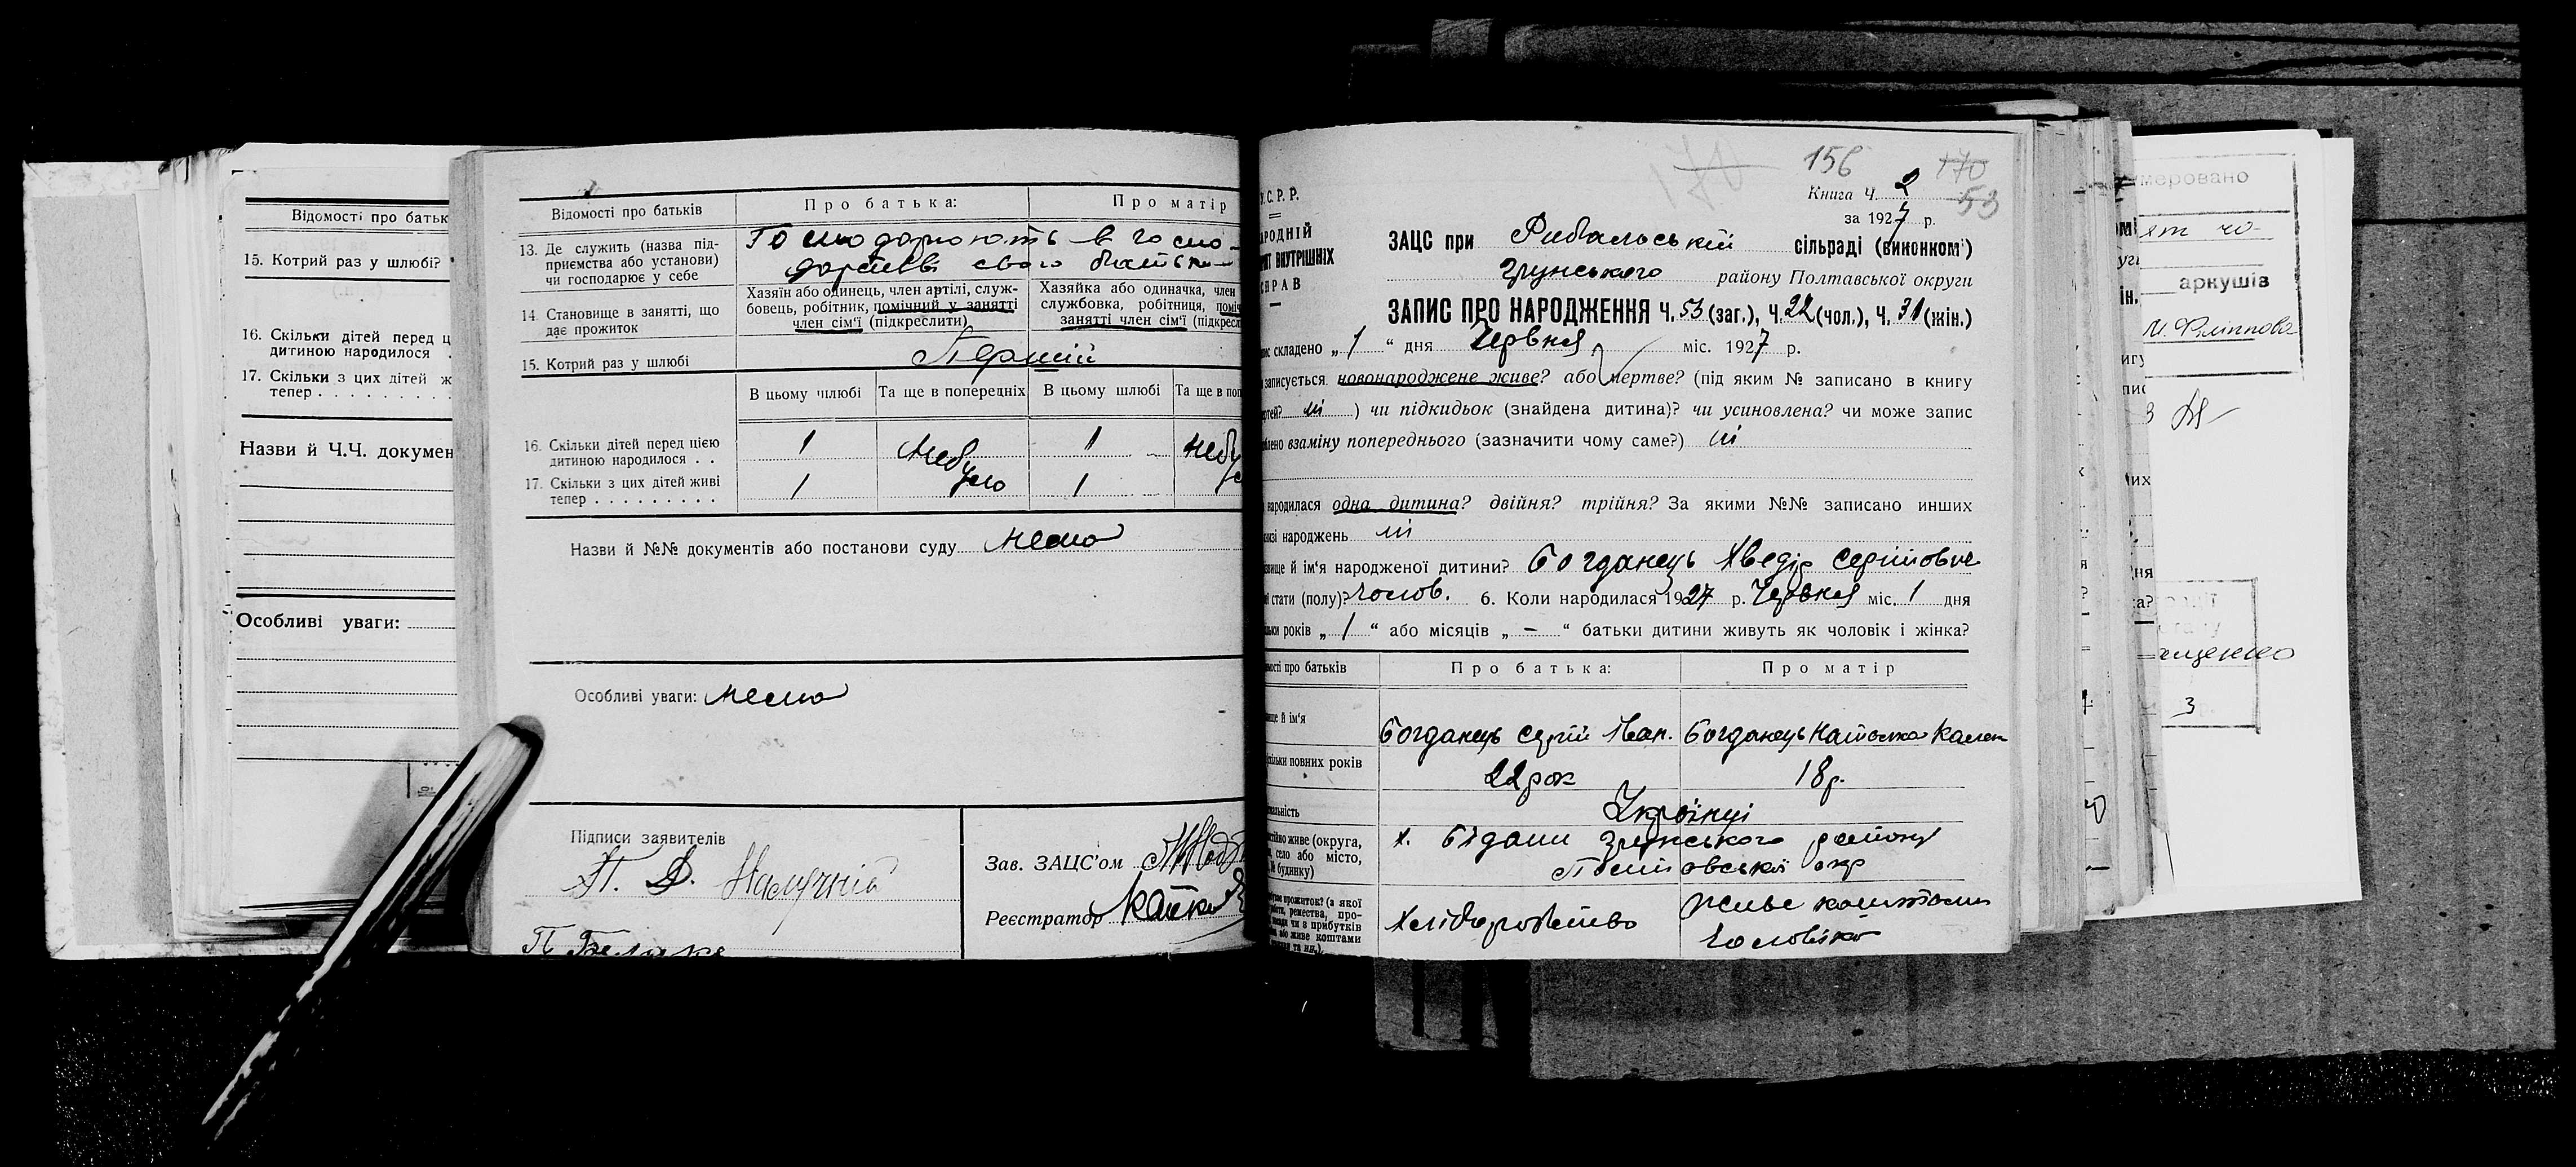 Відомості про батьк
15. Котрий раз у шлюбі?
16. Скільки дітей перед ц
дитиною народилося .
17. Скільки з цих дітей ж
тепер . . . . . . . . .
Назви й Ч.Ч. докумен
Особливі уваги:
Відомості про батьків
Про батька:
Про матір
13. Де служить (назва під-
приємства або установи)
чи господарює у себе
Господарюють в госпо-
дарстві свого батька
14. Становище в занятті, що
дає прожиток
Хазяїн або одинець, член артілі, служ-
бовець, робітник, помічний у занятті
член сім'ї (підкреслити)
Хазяйка або одиначка, член
службовка, робітниця, поміч
занятті член сім'ї (підкресл
15. Котрий раз у шлюбі
Перший
В цьому шлюбі Та ще в попередніх В цьому шлюбі Та ще в поп
16. Скільки дітей перед цією
дитиною народилося . .
1 небу 1 небу
17. Скільки з цих дітей живі
тепер . . . . . . . . .
1 ло 1
Назви й №№ документів або постанови суду нема
Особливі уваги: нема
Підписи заявителів
П. Д.
Зав. ЗАЦС'ом
Реєстратор
156
170
170
53
Книга Ч. 2
за 1927 р.
У.С.Р.Р.
АРОДНІЙ
ІЯТ ВНУТРІШНІХ
СПРАВ
ЗАЦС при Рибальській сільраді (виконком')
Зрунського району Полтавської округи
ЗАПИС ПРО НАРОДЖЕННЯ Ч. 53 (заг.), Ч. 22 (чол.), Ч. 31 (жін.)
пис складено „ 1 “ дня Червня міс. 1927 р.
записується новонароджене живе? або мертве? (під яким № записано в книгу
ертей? ні ) чи підкидьок (знайдена дитина)? чи усиновлена? чи може запис
облено взаміну попереднього (зазначити чому саме?) ні
народилася одна дитина? двійня? трійня? За якими №№ записано инших
народжень ні
звище й ім'я народженої дитини? Богданець Хведір Сергійович
стати (полу)? чолов. 6. Коли народилася 1927 р. Червня міс. 1 дня
льки років „ 1 “ або місяців „ — “ батьки дитини живуть як чоловік і жінка?
омості про батьків
Про батька:
Про матір
вище й ім'я
Богданець Сергій Іван.
Богданець Наталка Кален
кільки повних років
22 рок
18 р.
нальність
Українці
стійно живе (округа,
село або місто,
й будинку)
х. Бідани Зрунського району
Полтавської окр
прожиток? (з якої
ремества, про-
чи в прибутків
або живе коштами
та ин.)
Хліборобство
живе коштами
чоловіка
меровано
аркушів
3